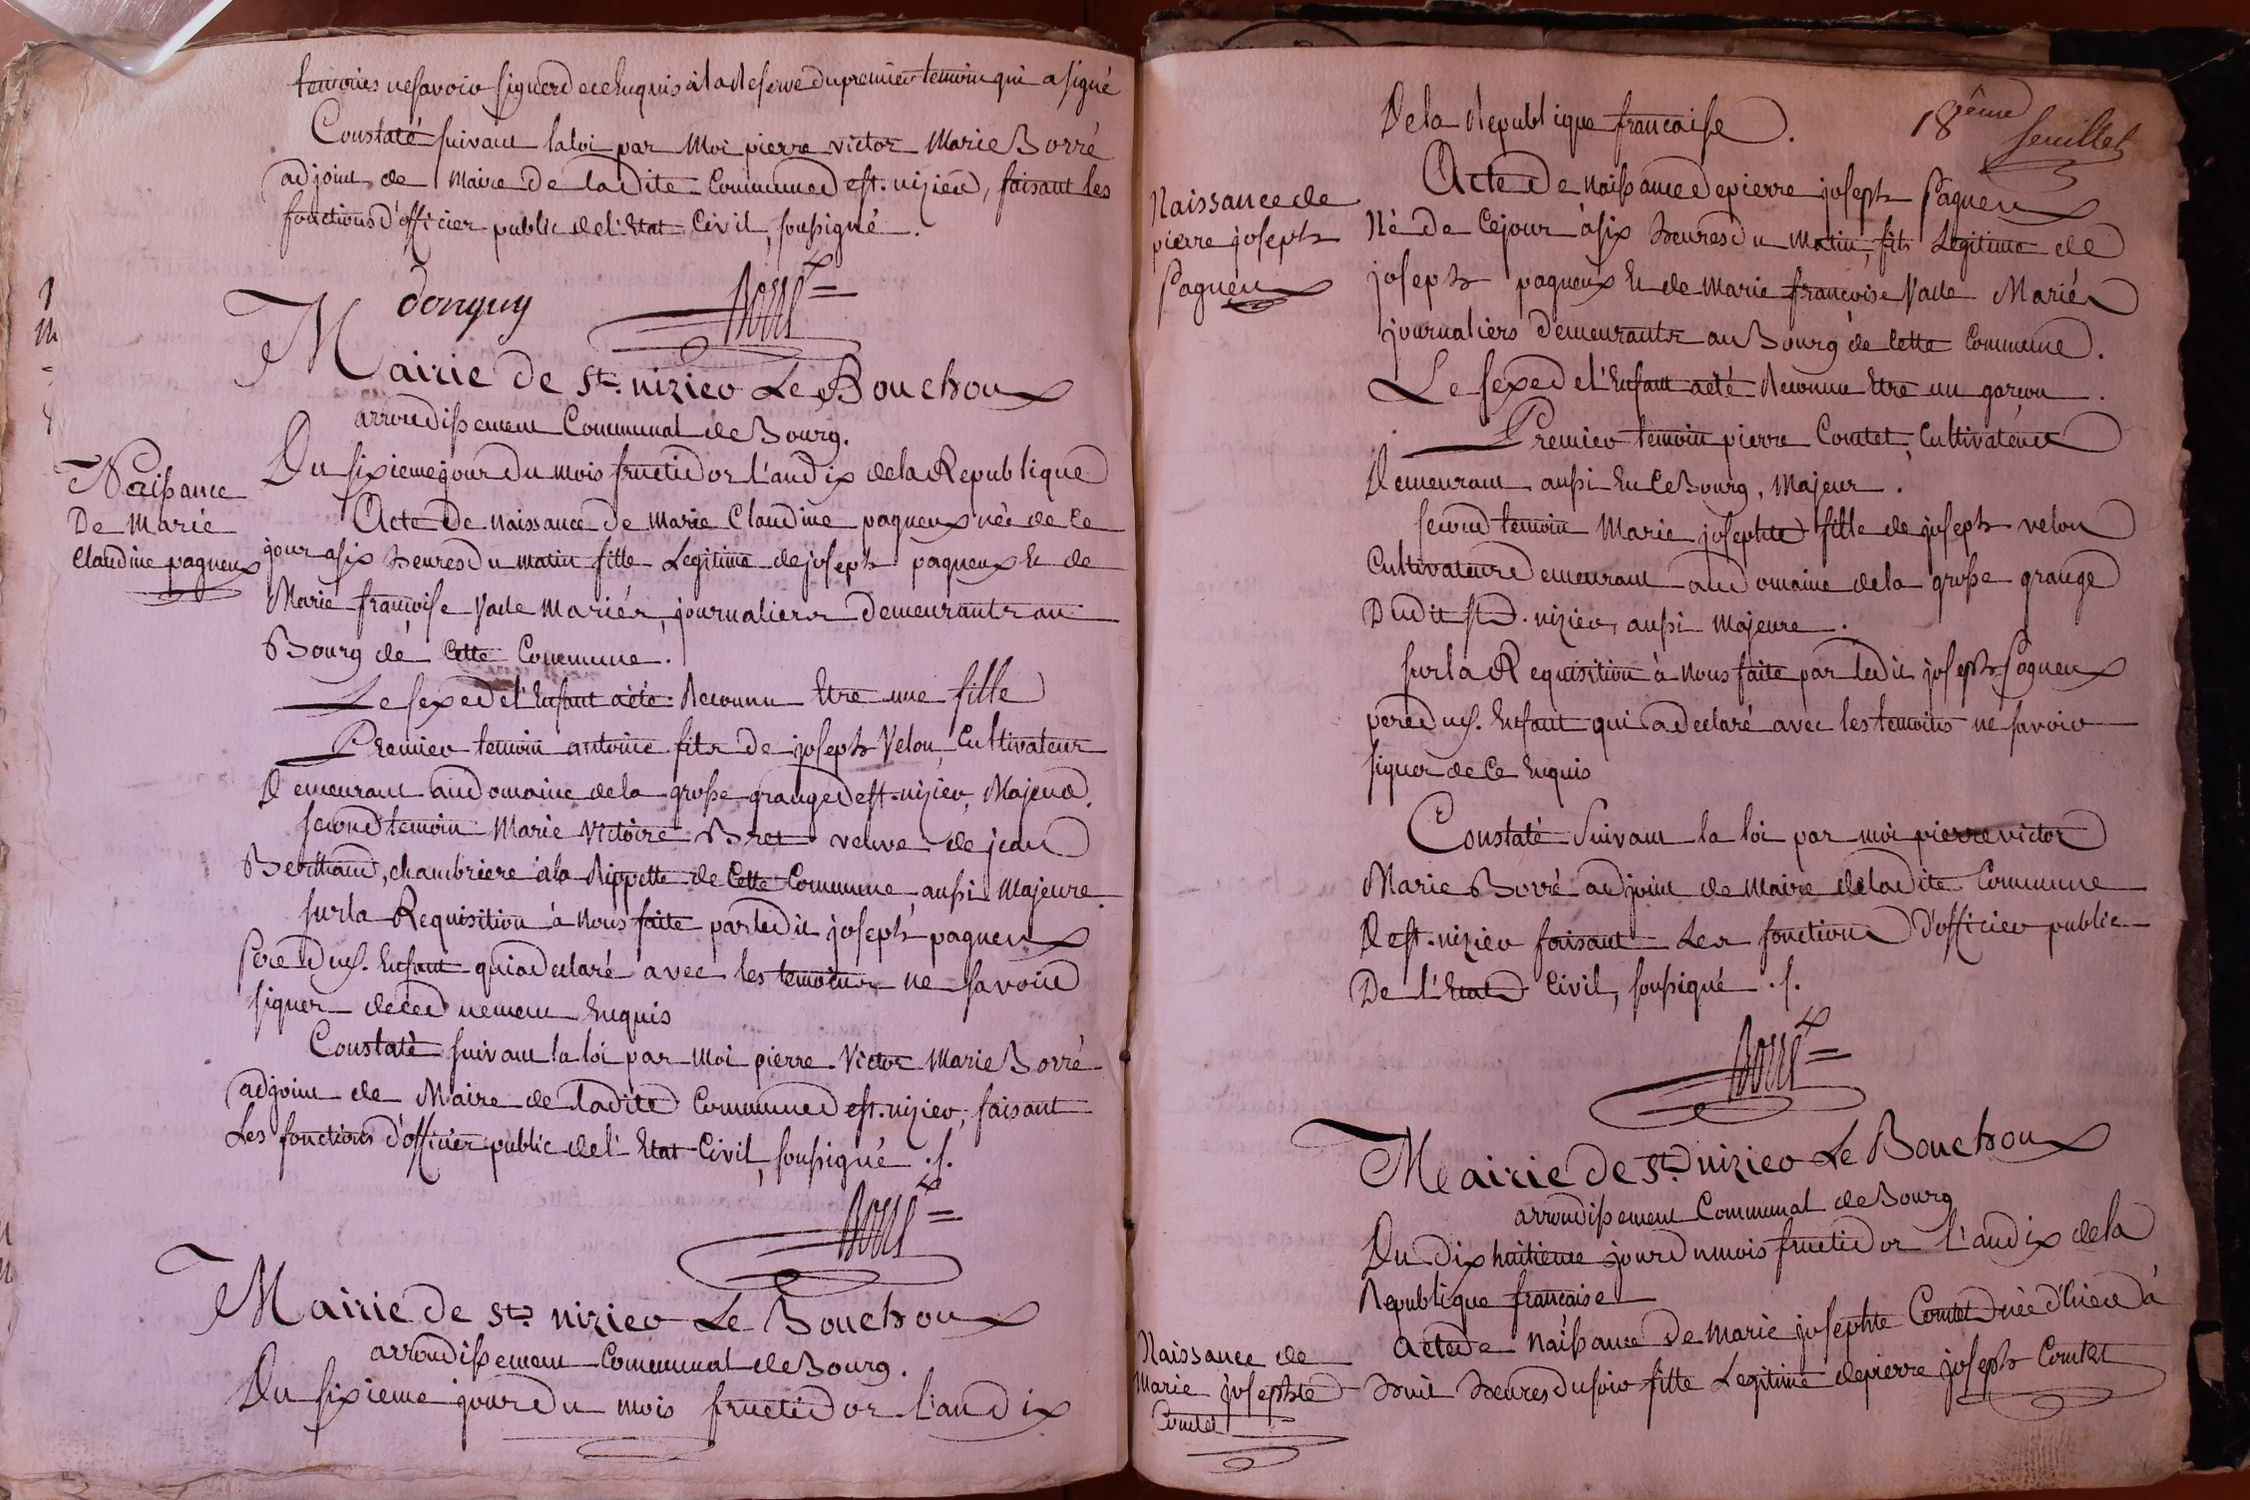 temoins ne savoir signer de ce Enquis à la Reserve du premier temoin qui a signé
Constaté suivant la loi par Moi pierre victor Marie Borré
adjoint de Maire de ladite Commune de st. nizier, faisant les
fonctions d'officier public de l'Etat Civil, soussigné.
donguy
Borré
Mairie de st. nizier Le Bouchoux
arrondissement Communal de Bourg.
Du sixieme jour du mois fructidor l'an dix de la Republique
Naissance
De Marie
Claudine pagneux
Acte De naissance De Marie Claudine pagneux née de ce
jour a six heures du matin fille Legitime de joseph pagneux Et de
Marie françoise Vade Mariés, journaliers Demeurants au
Bourg de Cette Commune.
Le sexe de l'Enfant a été Reconnu Etre une fille
Premier temoin antoine fils de joseph Velon, Cultivateur
Demeurant au domaine de la grosse grange de st. nizier, Majeur.
second temoin Marie Victoire Bret veuve de jean
Berthaud, chambriere à la Rippette de Cette Commune aussi Majeure.
sur la Requisition à Nous faite par ledit joseph pagneux
Pere dud. Enfant qui a declaré avec les temoins ne savoir
signer de ce duement Enquis
Constaté suivant la loi par Moi pierre Victor Marie Borré
adjoint de Maire de ladite Commune de st. nizier, faisant
Les fonctions d'officier public de l'Etat Civil, soussigné ./.
Borré
Mairie de st. nizier Le Bouchoux
arrondissement Communal de Bourg.
Du sixieme jour du mois fructidor l'an dix
18eme
feuillet
De la Republique francaise.
Naissance de
pierre joseph
Pagneux
Acte De naissance de pierre joseph Pagneux
Né de Ce jour à six heures du Matin, fils Legitime de
joseph pagneux Et de Marie françoise Vade Mariés
journaliers Demeurants au Bourg de Cette Commune.
Le sexe de l'Enfant a été Reconnu Etre un garcon.
Premier temoin pierre Comtet, Cultivateur
Demeurant aussi En Ce Bourg, Majeur.
second temoin Marie josephte fille de joseph velon
Cultivateur Demeurant au domaine de la grosse grange
Dudit st. nizier, aussi Majeure.
sur la Requisition à Nous faite par ledit joseph Pagneux
pere dud. Enfant qui a declaré avec les temoins ne savoir
signer de Ce Enquis
Constaté Suivant la loi par moi pierre victor
Marie Borré adjoint de Maire de ladite Commune
De st. nizier faisant Les fonctions d'officier public
De l'Etat Civil, soussigné ./.
Borré
Mairie de st. nizier Le Bouchoux
arrondissement Communal de Bourg
Du dix huitieme jour du mois fructidor l'an dix de la
Republique francaise
Naissance de
Marie josephte
Comtet
Acte de Naissance De Marie josephte Comtet née d'hier à
huit heures du soir fille Legitime de pierre joseph Comtet